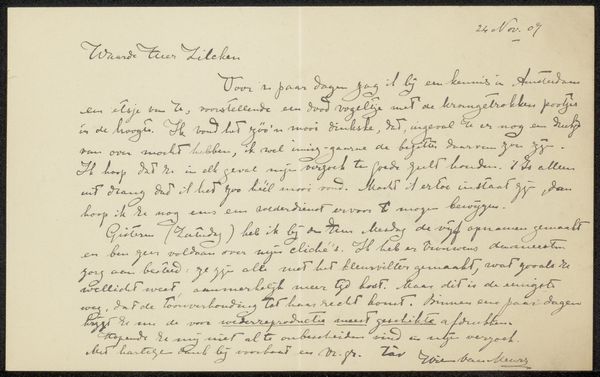 24 Nov. 07
Waarde Heer Zilcken
Voor 'n paar dagen zag ik bij een kennis in Amsterdam
een etsje van U, voorstellende een dood vogeltje met de kromgetrokken pootjes
in de hoogte. Ik vond het zóó'n mooi dinkske, dat, ingeval U er nog een drukje
van over mocht hebben, ik wel innig-gaarne de bezitter daarvan zou zijn.
Ik hoop dat U in elk geval mijn verzoek te goede zult houden. 't Is alleen
uit drang dat ik het zoo héél mooi vond. Mocht U ertoe instaat zijn, dan
hoop ik U nog eens een wederdienst ervoor te mogen bewijzen.
Gisteren (Zaterdag) heb ik bij den Heer Mesdag de vijf opnamen gemaakt
en ben zeer voldaan over mijn cliché's. Ik heb er trouwens de meeste
zorg aan besteed: ze zijn alle met het kleurfilter gemaakt, wat zooals U
wellicht weet, aanmerkelijk meer tijd kost. Maar dit is de eenigste
weg, dat de toonverhouding tot haar recht komt. Binnen een paar dagen
krijgt U een de voor wederreproductie meest geschikte afdrukken.
Hopende U mij niet al te onbescheiden vind in mijn verzoek.
Met hartelijk dank bij voorbaat en vr. gr.